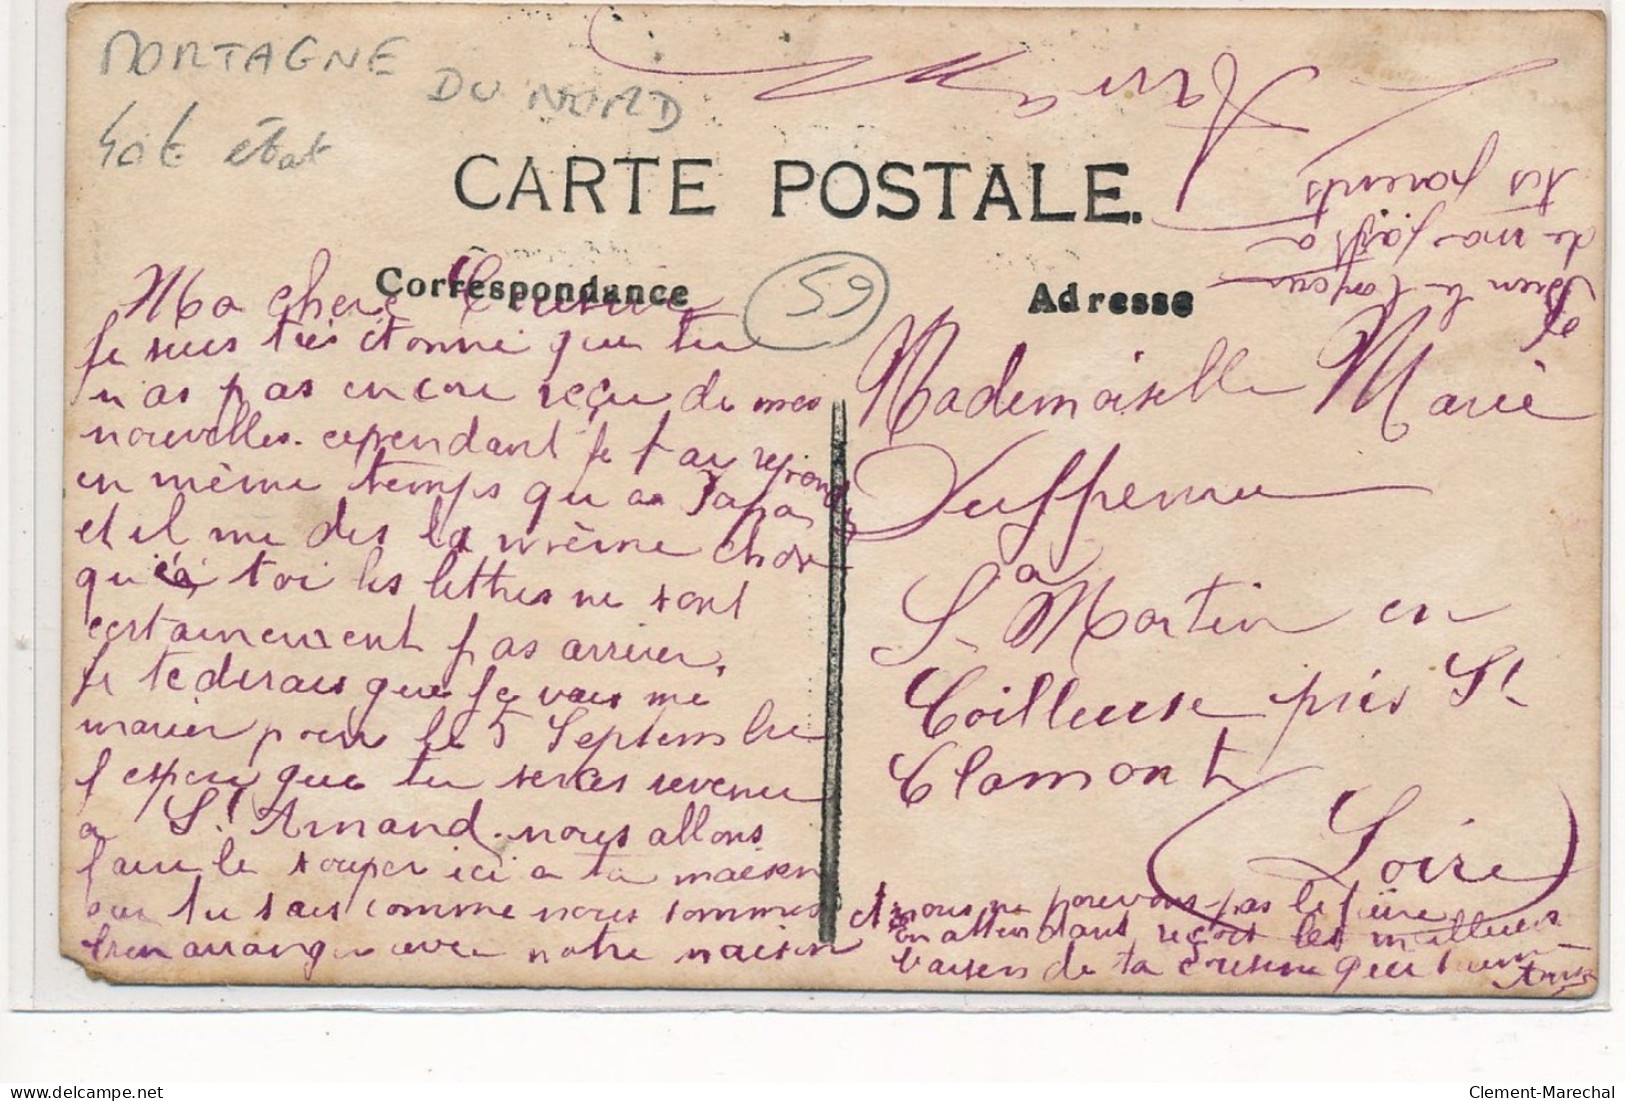 MORTAGNE
DU NORD
40€ état
CARTE POSTALE.
Correspondance
59
Adresse
Ma chere Cousine
Je suis tres étonné que tu
n as pas encore reçu de mes
nouvelles. cependant je t ai repondu
en même temps qu a Papa
et il me dis la même chose
qu a toi les lettres ne sont
certainement pas arriver.
Je te dirais que je vais me
marier pour le 5 Septembre
j espere que tu seras revenu
a St Amand. nous allons
faire le souper ici a ta maison
car tu sais comme nous sommes
bien arranger avec notre maison
et nous ne pouvons pas le faire
en attendant reçois les meilleurs
baisers de ta cousine qui t aime
Anna
Mademoiselle Marie
Suffenne
a
St Martin en
Coilleuse près St
Chamont
(Loire)
Bien le bonjour
de ma part a
tes parents
Anna
Clement-Marechal
delcampe.net